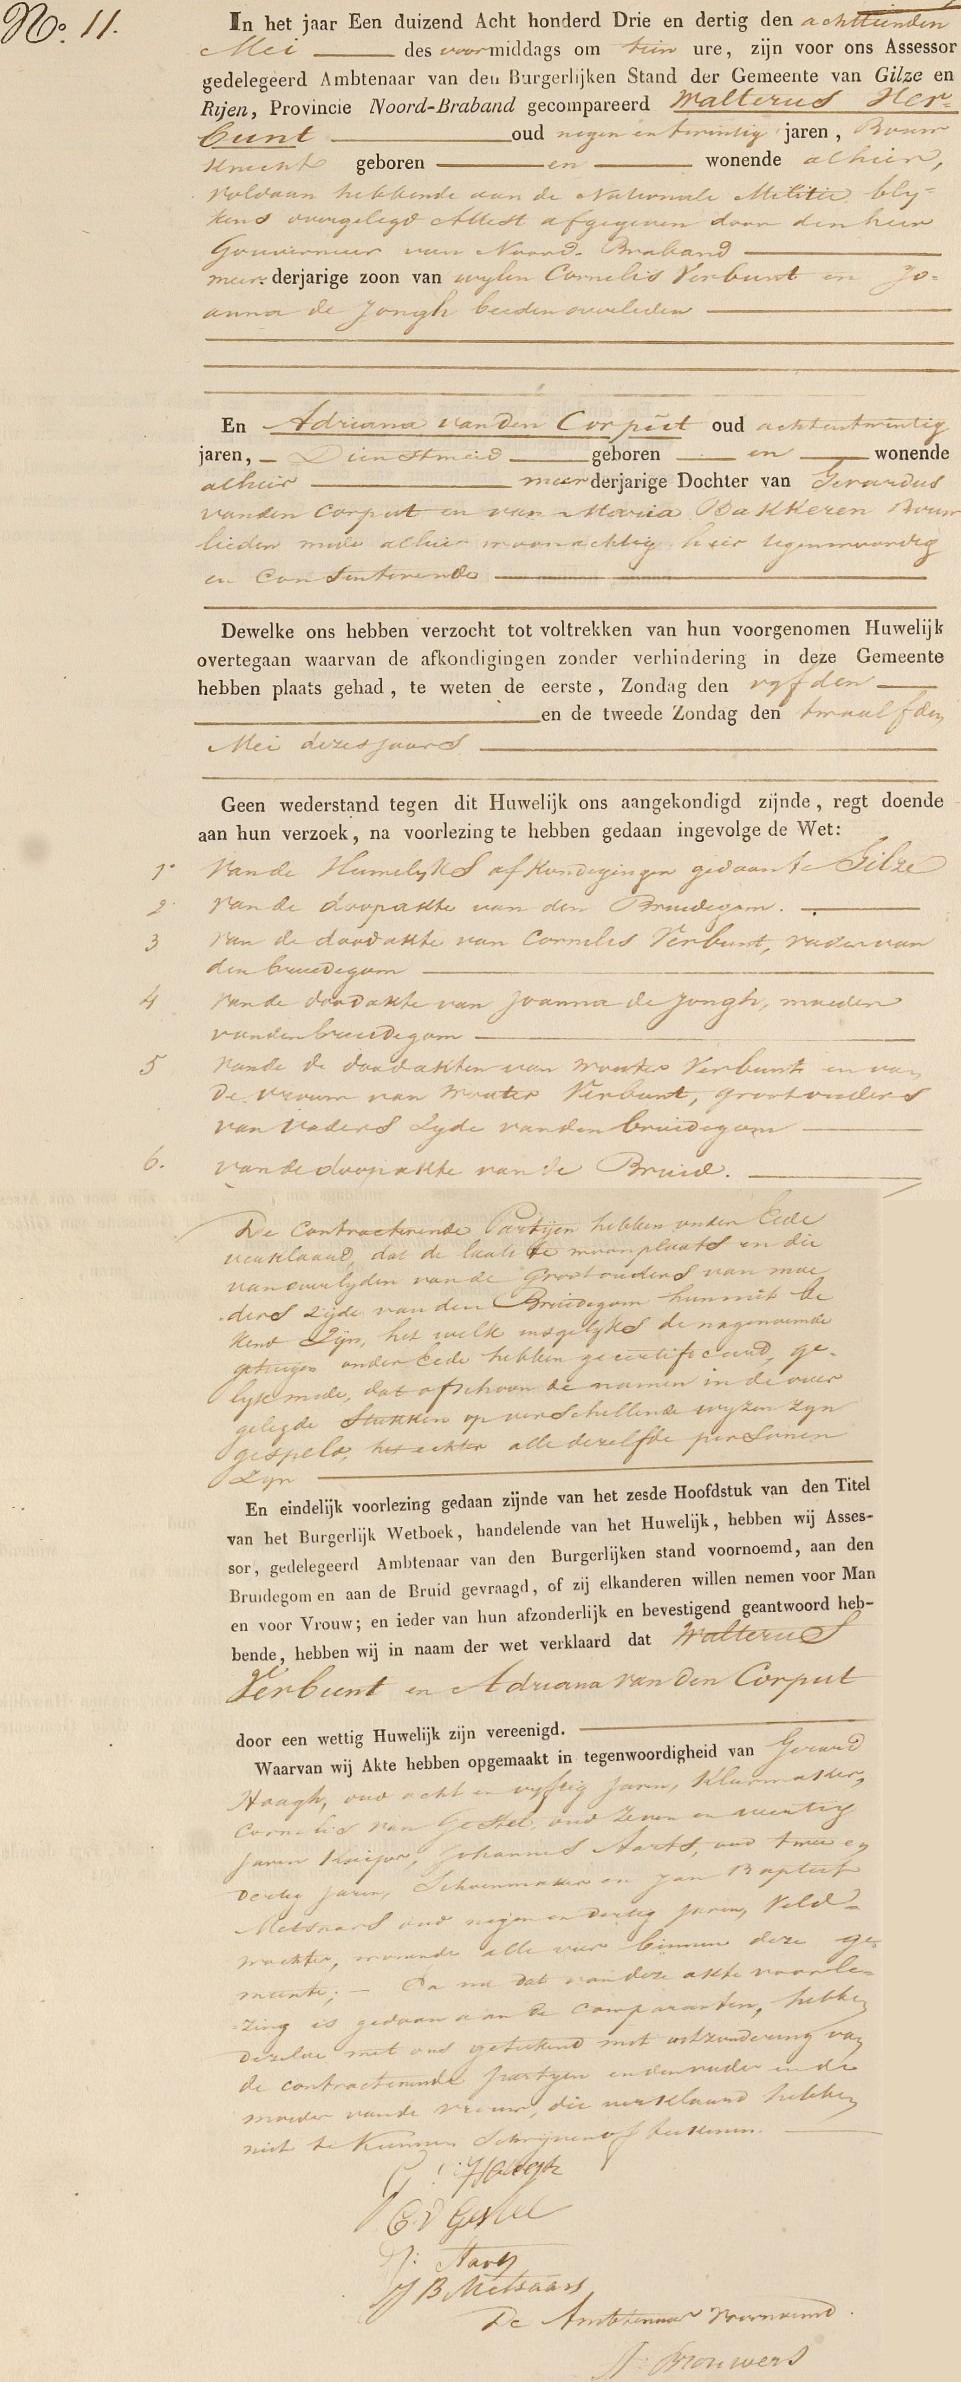 No. 11.
In het jaar Een duizend Acht honderd Drie en dertig den achttienden
Mei des voormiddags om tien ure, zijn voor ons Assessor
gedelegeerd Ambtenaar van den Burgerlijken Stand der Gemeente van Gilze en
Rijen, Provincie Noord-Braband gecompareerd Walterus Ver-
bunt oud negen en twintig jaren, Bouw
knecht geboren en wonende alhier,
voldaan hebbende aan de Nationale Militie bly-
kens overgelegd Attest afgegeven door den heer
Gouverneur van Noord-Braband
meerderjarige zoon van wylen Cornelis Verbunt en Jo-
anna de Jongh beiden overleden
En Adriana van den Corput oud achtentwintig
jaren, Dienstmeid geboren en wonende
alhier meerderjarige Dochter van Gerardus
van den Corput en van Maria Bakkeren Bouw
lieden mede alhier woonachtig hier tegenwoordig
en Consenterende
Dewelke ons hebben verzocht tot voltrekken van hun voorgenomen Huwelijk
overtegaan waarvan de afkondigingen zonder verhindering in deze Gemeente
hebben plaats gehad, te weten de eerste, Zondag den vyfden
en de tweede Zondag den twaalfden
Mei dezes jaars
Geen wederstand tegen dit Huwelijk ons aangekondigd zijnde, regt doende
aan hun verzoek, na voorlezing te hebben gedaan ingevolge de Wet:
1° Van de Huwelyks afkondigingen gedaan te Gilze
2° van de doopakte van den Bruidegom.
3 van de doodakte van Cornelis Verbunt, vader van
den bruidegom
4 van de doodakte van Joanna de Jongh, moeder
van den bruidegom
5 van de de doodakten van Wouter Verbunt en van
de vrouw van Wouter Verbunt, grootouders
van Vaders Zyde van den bruidegom
6. van de doopakte van de Bruid.
De Contracterende Partijen hebben onder Eede
verklaard, dat de laatste woonplaats en die
van overlyden van de Grootouders van moe
ders zijde van den Bruidegom hun niet be
kend Zijn, het welk insgelyks de nagenoemde
getuigen onder Eede hebben gecertificeerd, ge-
lyk mede, dat ofschoon de namen in de over
gelegde Stukken op verschillende wyzen zyn
gespeld, het echter alle dezelfde persoonen
Zyn
En eindelijk voorlezing gedaan zijnde van het zesde Hoofdstuk van den Titel
van het Burgerlijk Wetboek, handelende van het Huwelijk, hebben wij Asses-
sor, gedelegeerd Ambtenaar van den Burgerlijken stand voornoemd, aan den
Bruidegom en aan de Bruid gevraagd, of zij elkanderen willen nemen voor Man
en voor Vrouw; en ieder van hun afzonderlijk en bevestigend geantwoord heb-
bende, hebben wij in naam der wet verklaard dat Walterus
Verbunt en Adriana van den Corput
door een wettig Huwelijk zijn vereenigd.
Waarvan wij Akte hebben opgemaakt in tegenwoordigheid van Gerard
Haagh, oud acht en vyftig jaren, Kleermaker,
Cornelis van Gestel oud zeven en veertig
jaren Kuiper, Johannes Aarts, oud twee en
dertig jaren, Schoenmaker en Jan Baptist
Metsaars oud negen en dertig jaren, Veld-
wachter, wonende alle vier binnen deze ge-
meente; — En na dat van deze akte voorle-
zing is gedaan aan de Comparanten, hebben
dezelve met ons geteekend met uitzondering van
de contracterende partyen en den vader en de
moeder van de vrouw, die verklaard hebben
niet te kunnen Schrijven of teekenen.
G: Haagh
C. v Gestel
J: Aarts
J B Metsaars
De Ambtenaar voornoemd.
J: Brouwers